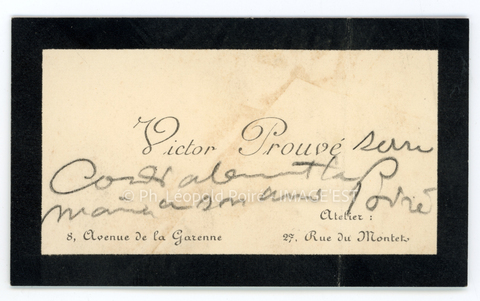 Victor Prouvé serre
Cordialement la
main à son ami Poiré
© Ph Léopold Poiré / IMAGE'EST
Atelier :
8, Avenue de la Garenne 27, Rue du Montet.